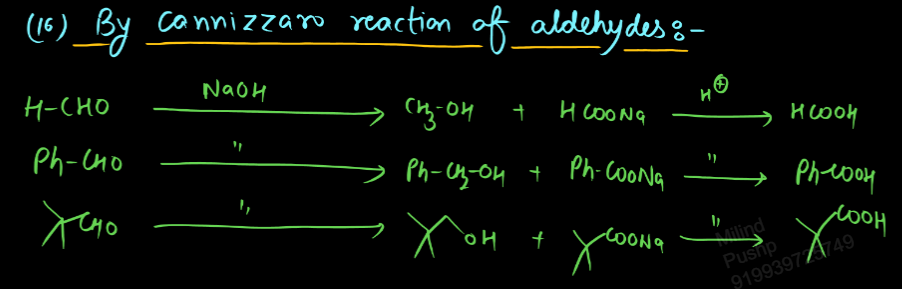 (16) By Cannizzaro reaction of aldehydes :-
H-CHO NaOH CH3-OH + HCOONa H⊕ HCOOH
Ph-CHO " Ph-CH2-OH + Ph-COONa " Ph-COOH
CHO " OH + COONa " COOH
Milind
Pushp